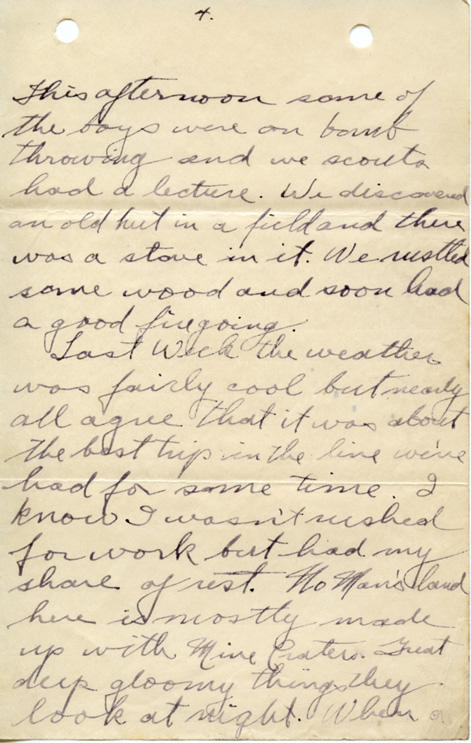 4.
This afternoon some of
the boys were on bomb
throwing and we scouts
had a lecture. We discovered
an old hut in a field and there
was a stove in it. We rustled
some wood and soon had
a good fire going.
Last Week the weather
was fairly cool but nearly
all agree that it was about
the best trip in the line we've
had for some time. I
know I wasn't rushed
for work but had my
share of rest. No Man's land
here is mostly made
up with Mine Craters. Great
deep gloomy things they
look at night. When